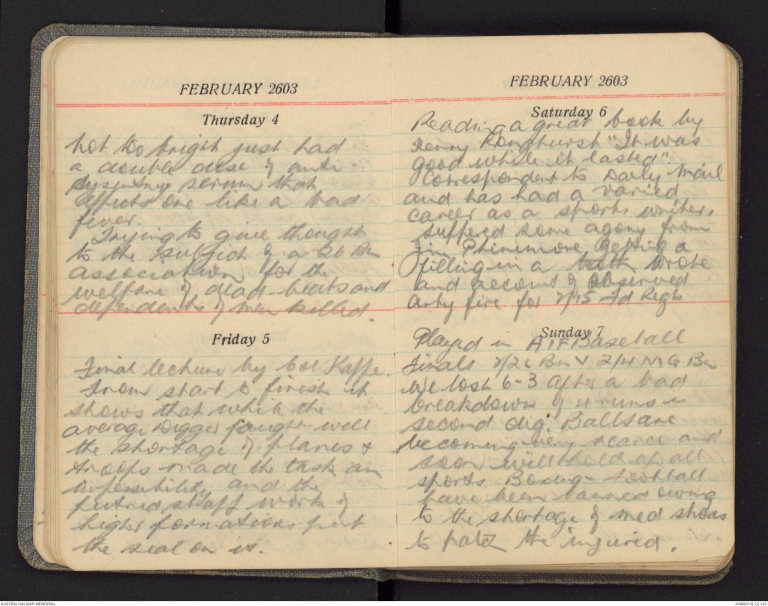 FEBRUARY 2603
Thursday 4
Not too bright just had
a double dose of anti
dysentry serum that
effects one like a bad
fever.
Trying to give thought
to the subject of a 26 Bn
association for the
welfare of dead-beats and
dependants of men killed.
Friday 5
Final lecture by Col Kappe.
From start to finish it
shows that while the
average Digger fought well
the shortage of planes &
troops made the task an
impossibility and the
putrid staff work of
higher formations put
the seal on it.
FEBRUARY 2603
Saturday 6
Reading a great book by
Henry Longhurst "It was
good while it lasted"
Correspondent to Daily Mail
and has had a varied
career as a sports writer.
Suffered some agony from
Jim Phinimore getting a
filling in a tooth. Wrote
and account of observed
arty fire for 2/15 Fd Regt
Sunday 7
Played in AIF Baseball
Finals 2/26 Bn V 2/4 M G Bn
We lost 6-3 after a bad
breakdown of 4 runs in
second dig. Balls are
becoming very scarce and
soon will hold up all
sports. Boxing & football
have been banned owing
to the shortage of med stores
to patch the injured.
AUSTRALIAN WAR MEMORIAL